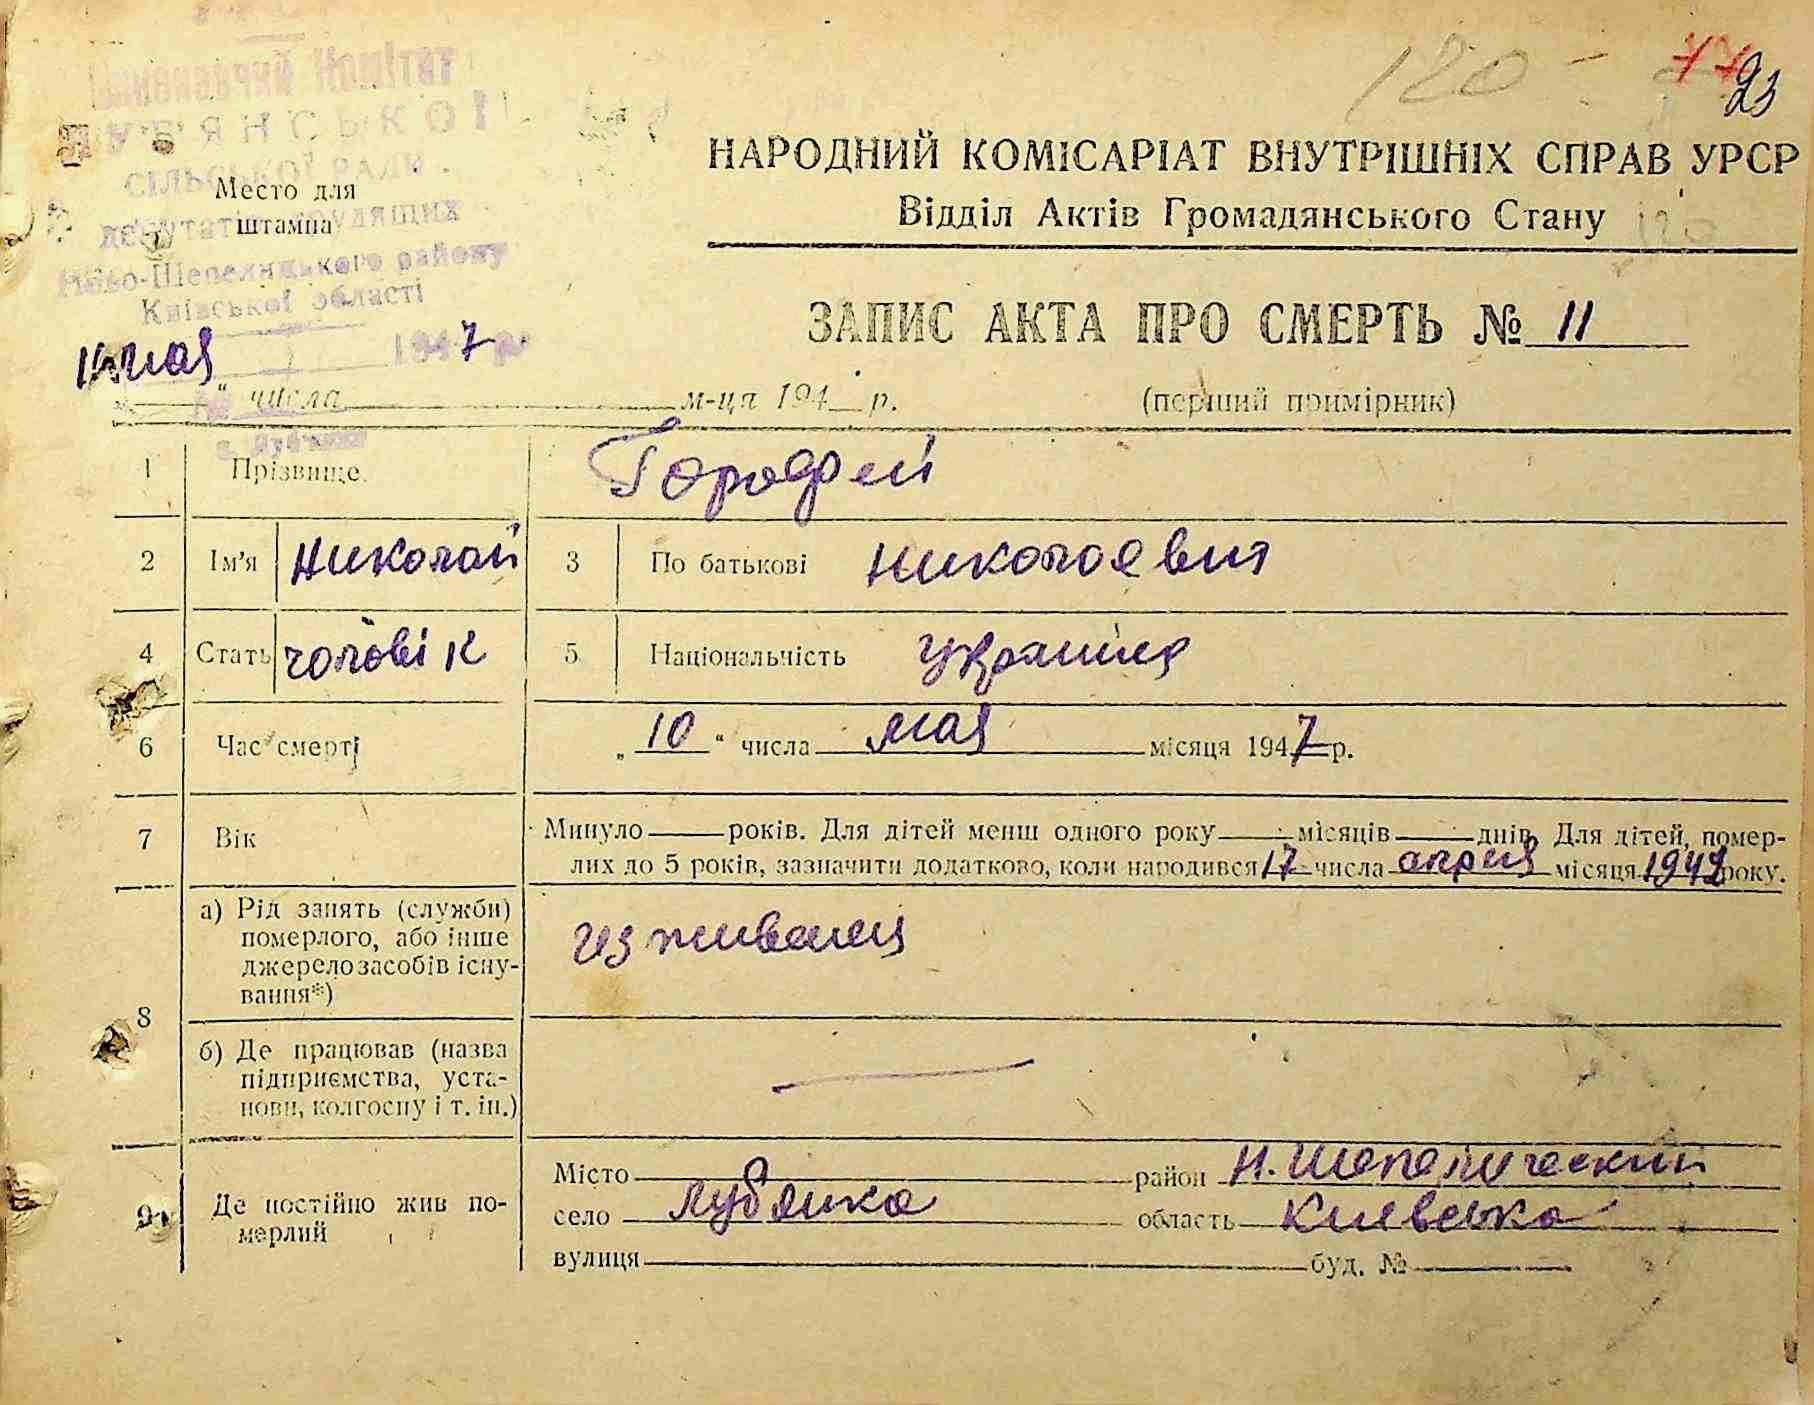 120 -
23
Виконавчий Комітет
ЛУБ'ЯНСЬКОЇ
СІЛЬСЬКОЇ РАДИ
депутатів трудящих
Ново-Шепелицького району
Київської області
Место для
штампа
14 мая 1947 р.
НАРОДНИЙ КОМІСАРІАТ ВНУТРІШНІХ СПРАВ УРСР
Відділ Актів Громадянського Стану
ЗАПИС АКТА ПРО СМЕРТЬ № 11
" числа м-ця 194 р. (перший примірник)
1 Прізвище
2 Ім'я Николай 3 По батькові Николаевич
4 Стать чоловік 5 Національність
6 Час смерті „ 10 " числа мая місяця 1947 р.
7 Вік Минуло років. Для дітей менш одного року місяців днів. Для дітей, помер-
лих до 5 років, зазначити додатково, коли народився 17 числа апреля місяця 1947 року.
8 а) Рід занять (служби)
померлого, або інше
джерело засобів існу-
вання*)
иждивенец
б) Де працював (назва
підприємства, уста-
нови, колгоспу і т. ін.)
9 Де постійно жив по-
мерлий
Місто район Н. Шепелический
село Лубянка область Киевська
вулиця буд. №